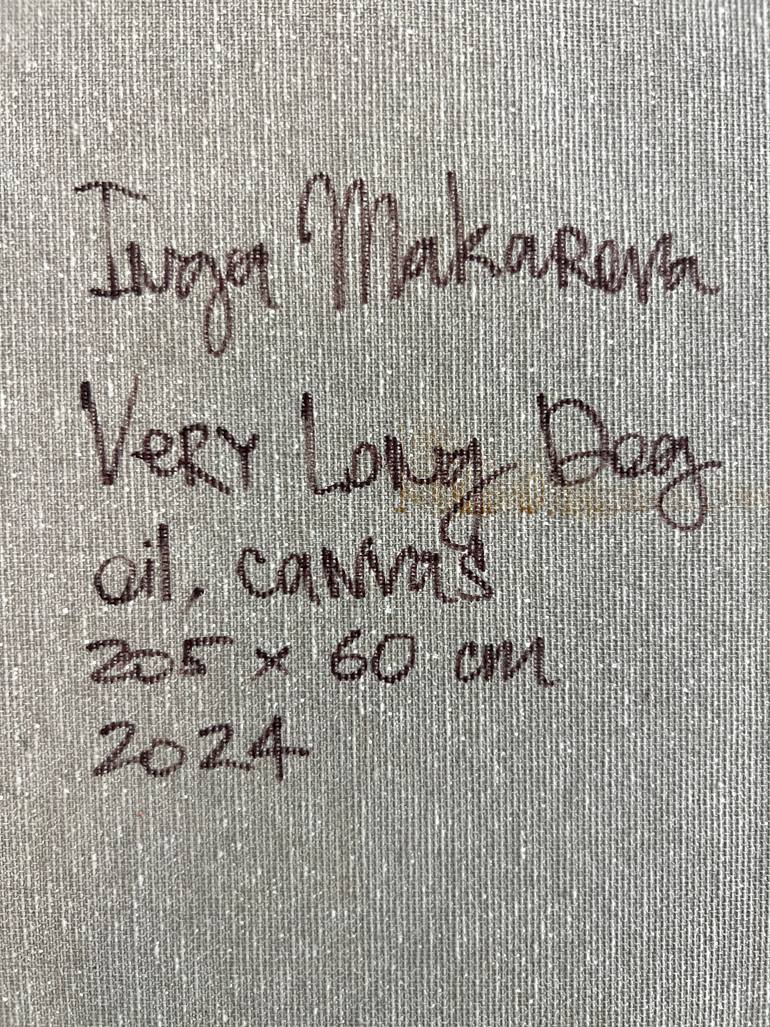 Inga Makarova
Very Long Dog
oil, canvas
205 x 60 cm
2024